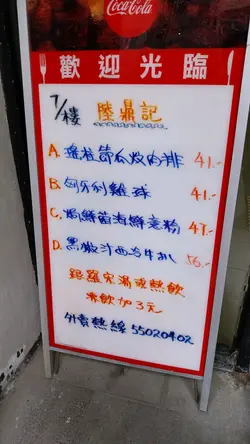 Coca-Cola
歡迎光臨
7/樓 陸鼎記
A. 瑤柱節瓜炆肉排 41.-
B. 匈牙利雞球 41.-
C. 焗鮮茄海鮮意粉 47.-
D. 黑椒汁西冷牛扒 56.-
跟羅宋湯或熱飲
凍飲加3元
外賣熱線 55020402